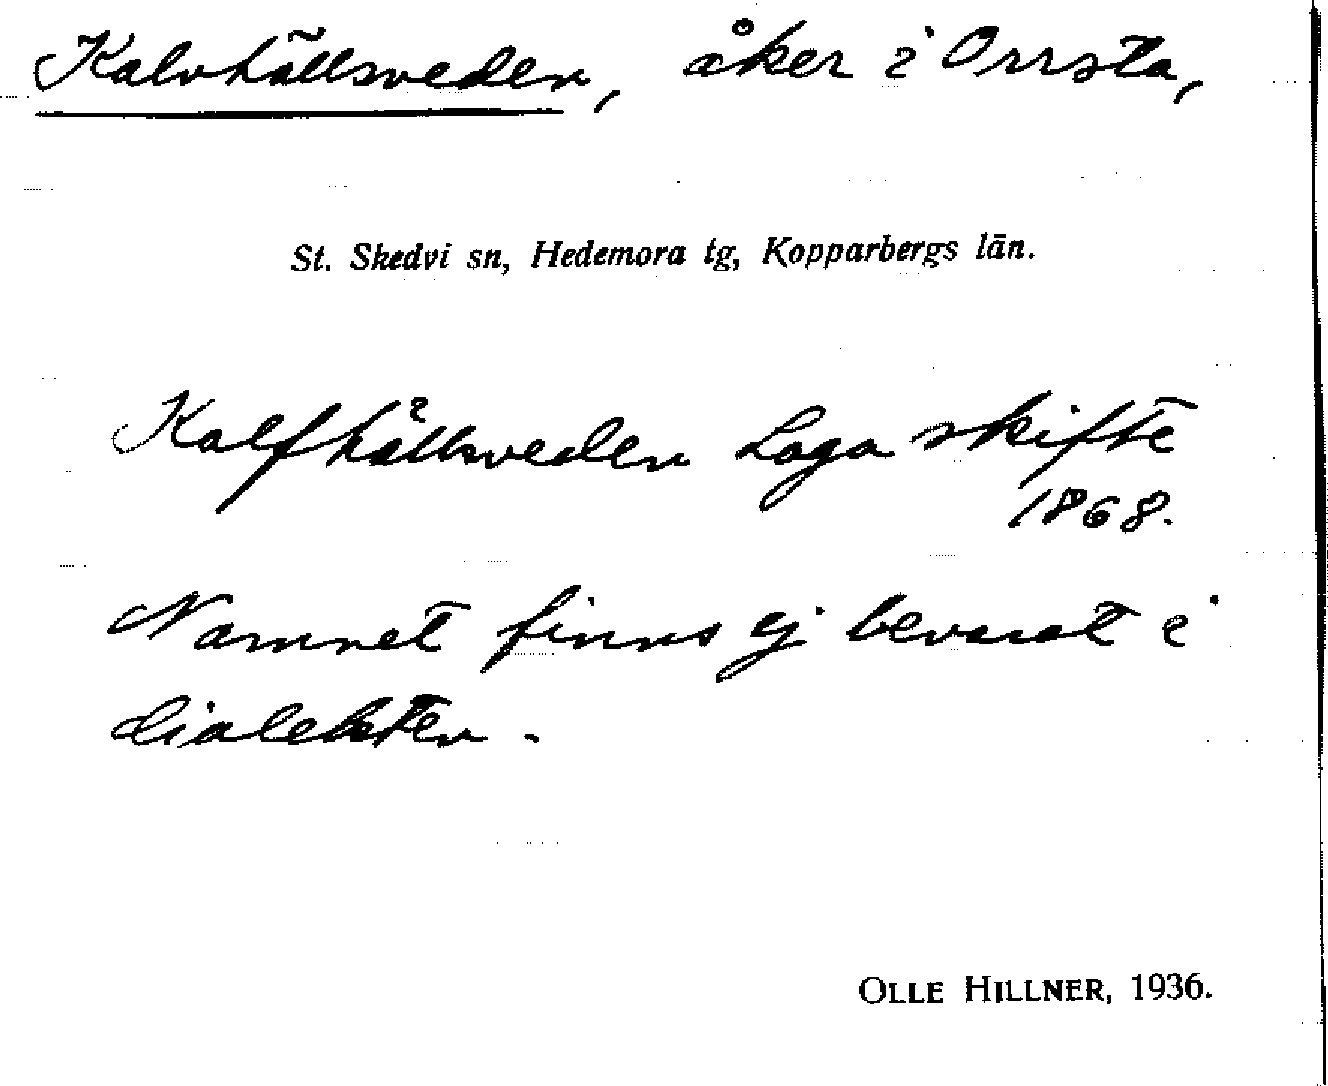 Kalvhällsveden, åker i Orrsta,
St. Skedvi sn, Hedemora tg, Kopparbergs län.
Kalfhällsveden Laga skifte
1868.
Namnet finns ej bevarat i
dialekten.
OLLE HILLNER, 1936.